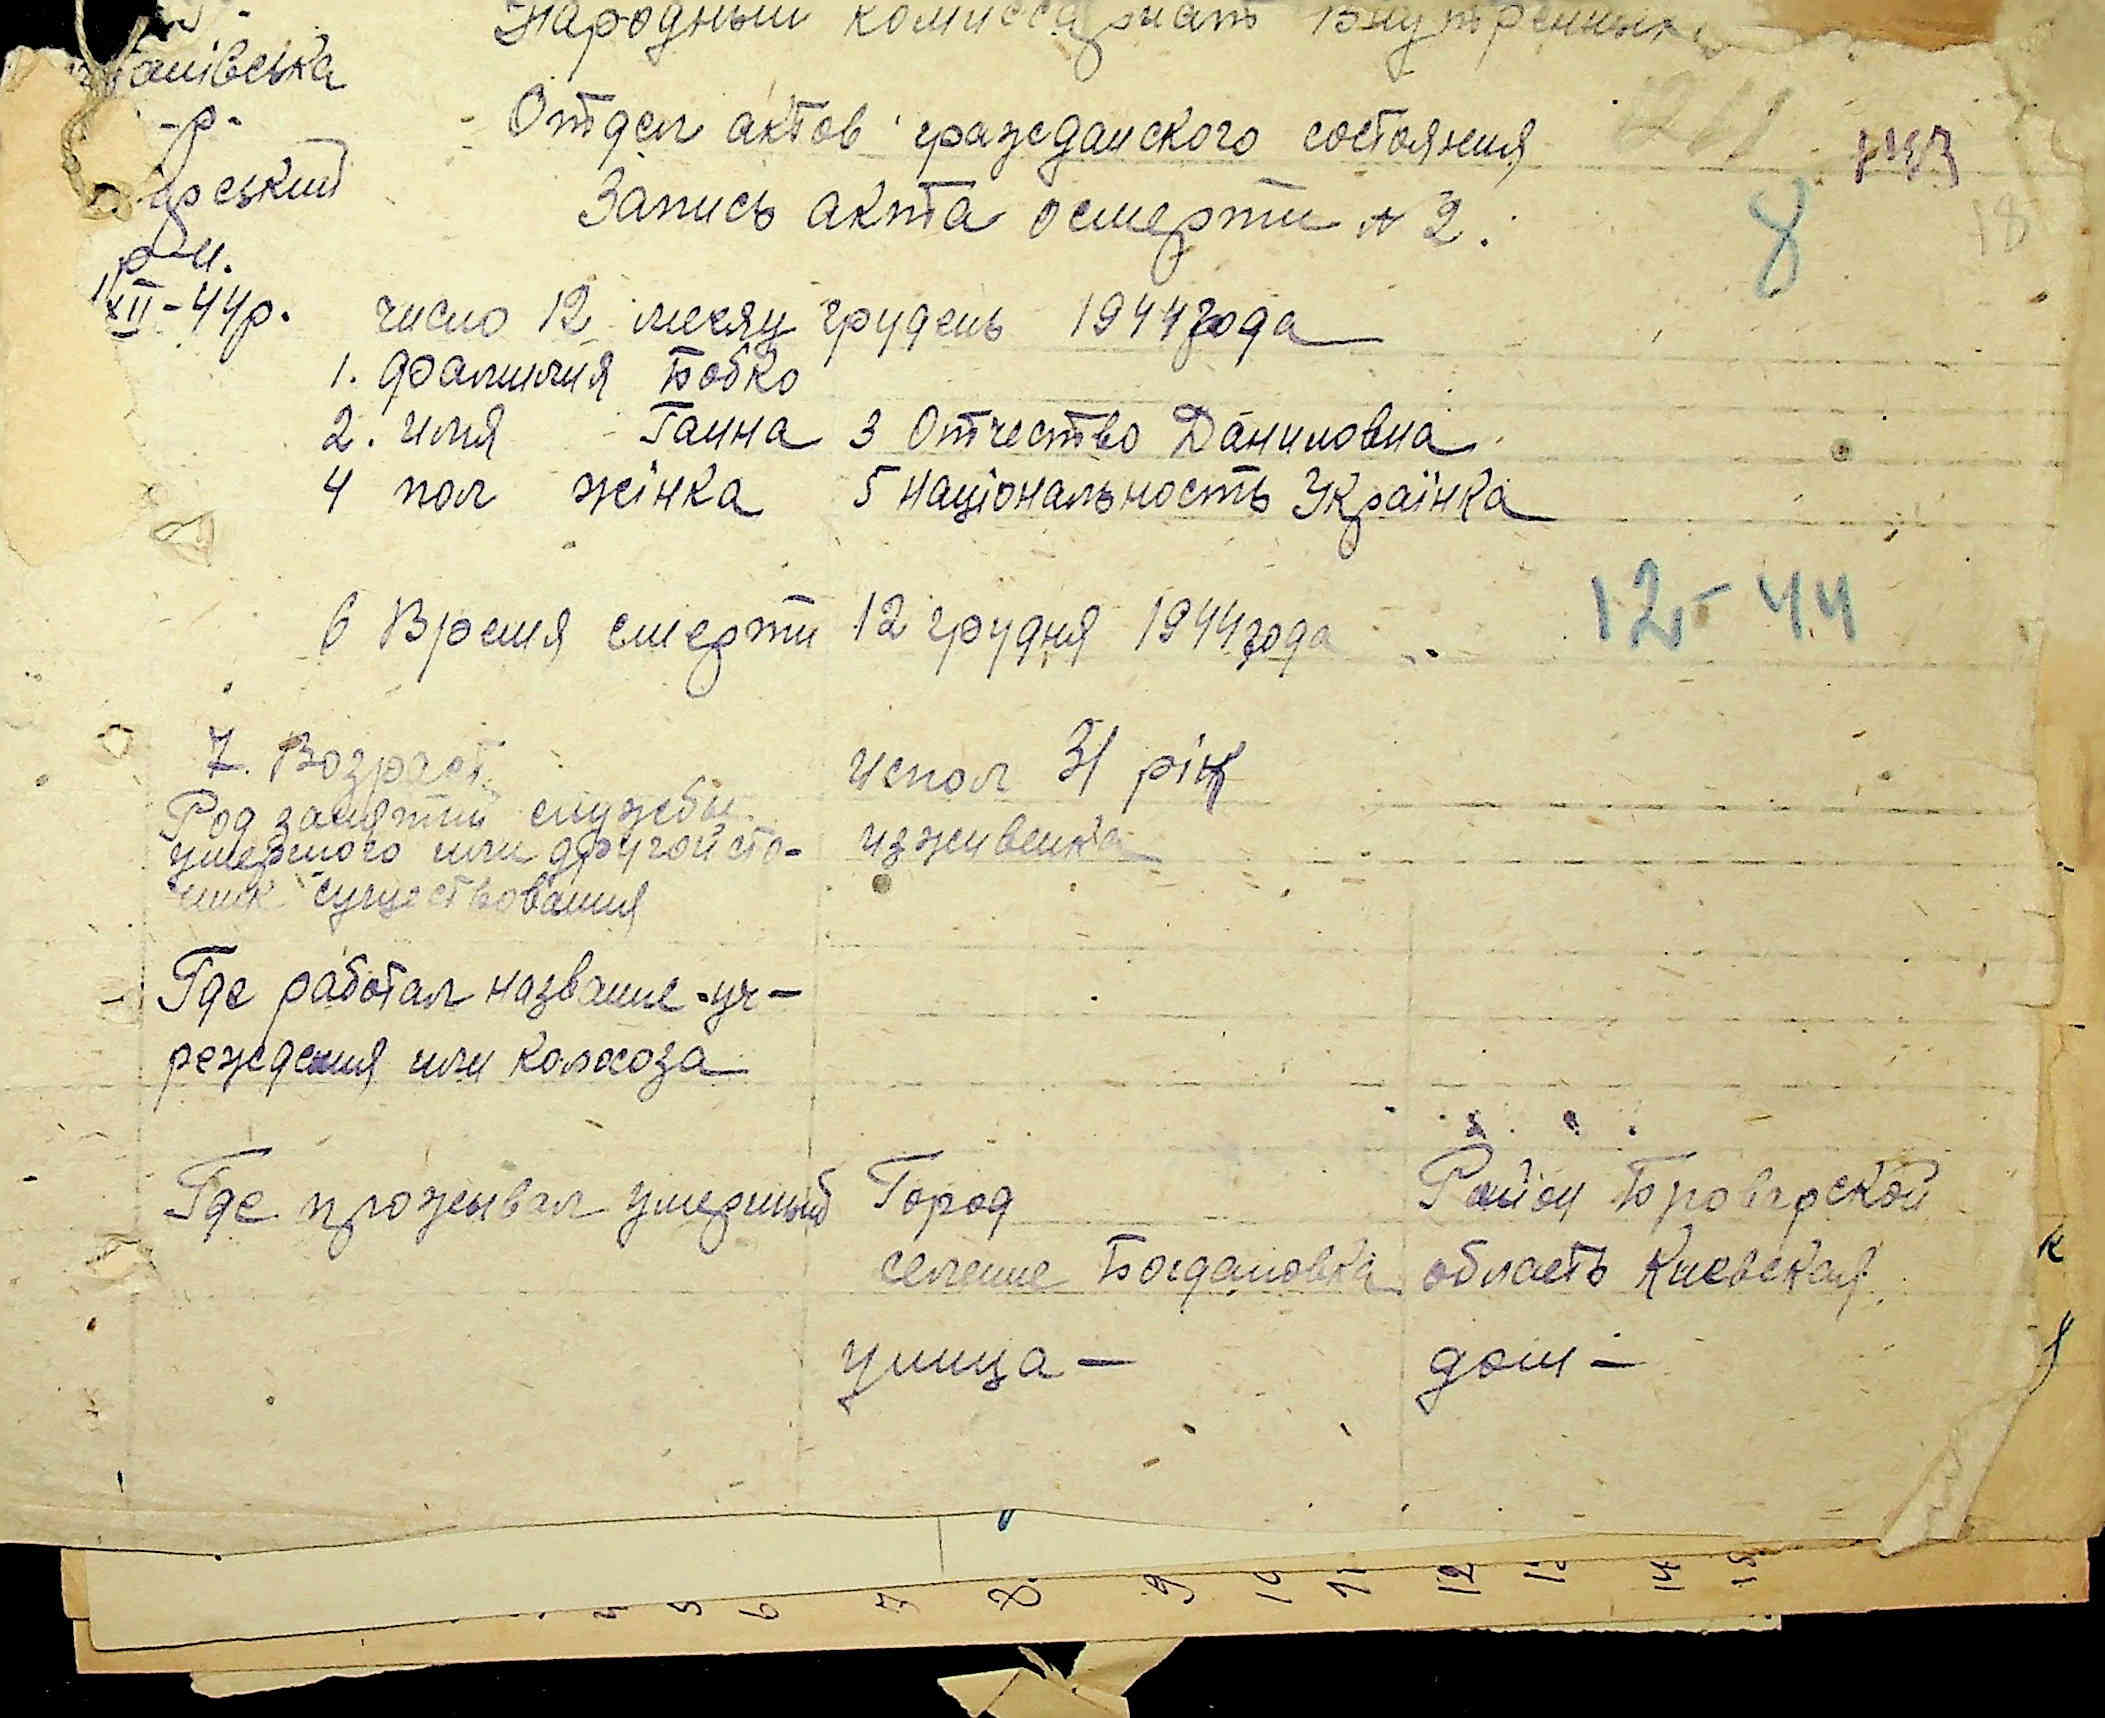 Народный комиссариат Внутренних
анівська
Отдел актов гражданского состояния
-р-
рський
Запись акта осмерти № 2.
8
18
р-н.
XII-44р.
число 12 месяц грудень 1944 года
1. фамилия Бобко
2. имя Ганна 3 Отчество Даниловна
4 пол жінка 5 Національность Українка
6 Время смерти 12 грудня 1944 года
12-44
7. Возраст испол 31 рік
Род занятий службы
умершого или другой сто- изживенка
чник существования
Где работал название уч-
реждения или колхоза
Где проживал умерший Город Район Броварской
селение Богдановка область Киевская
улица - дом -
4 5 6 7 8 9 10 11 12 14